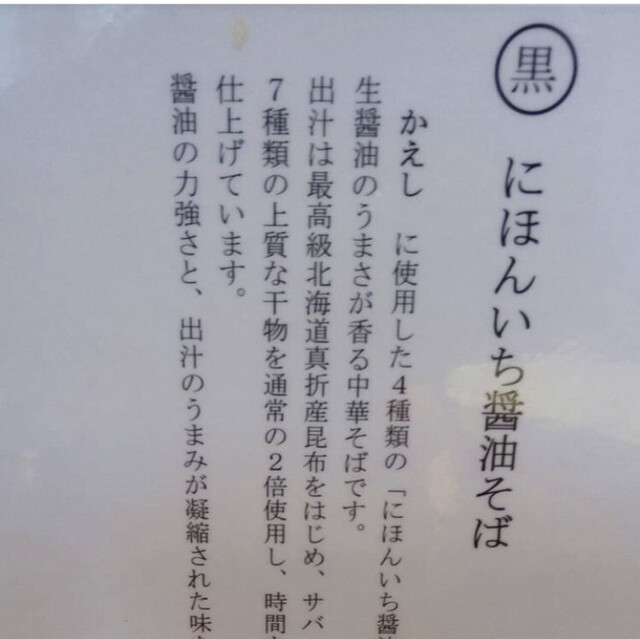 黒
にほんいち醤油そば
かえし に使用した4種類の「にほんいち醤
生醤油のうまさが香る中華そばです。
出汁は最高級北海道真折産昆布をはじめ、サバ
7種類の上質な干物を通常の2倍使用し、時間
仕上げています。
醤油の力強さと、出汁のうまみが凝縮された味